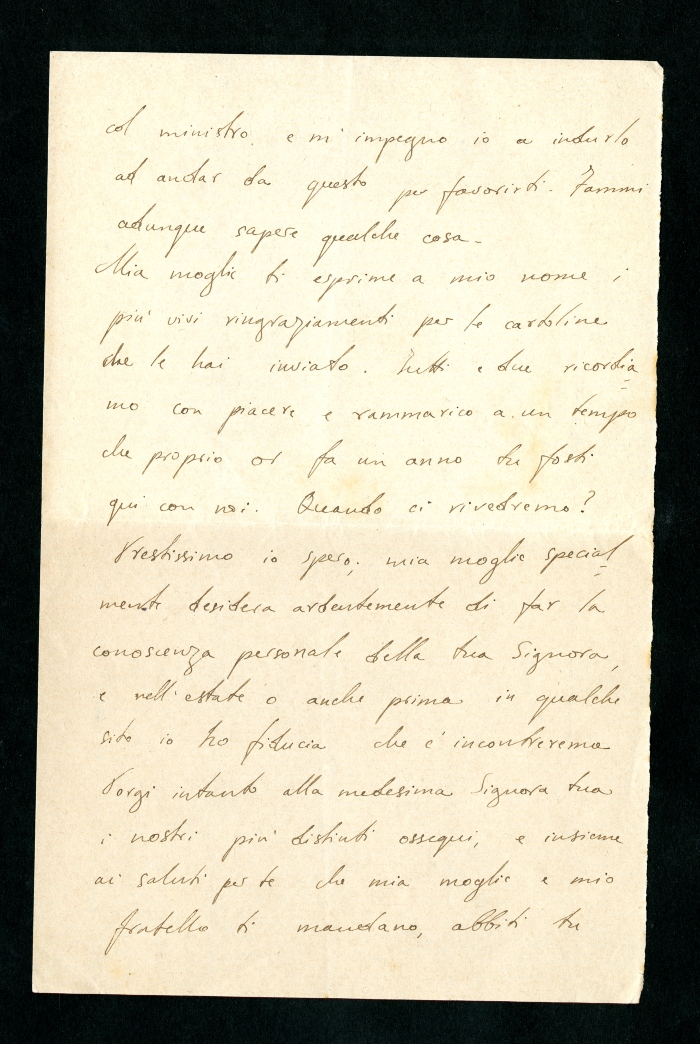 col ministro. e mi impegno io a indurlo
ad andar da questo per favorirti. Fammi
adunque sapere qualche cosa.
Mia moglie ti esprime a mio nome i
più vivi ringraziamenti per le cartoline
che le hai inviato. Tutti e due ricordia=
mo con piacere e rammarico a un tempo
che proprio or fa un anno tu fosti
qui con noi. Quando ci rivedremo?
Prestissimo io spero; mia moglie special=
mente desidera ardentemente di far la
conoscenza personale della tua Signora,
e nell'estate o anche prima in qualche
sito io ho fiducia che c'incontreremo
Porgi intanto alla medesima Signora tua
i nostri più distinti ossequi, e insieme
ai saluti per te che mia moglie e mio
fratello ti mandano, abbiti tu